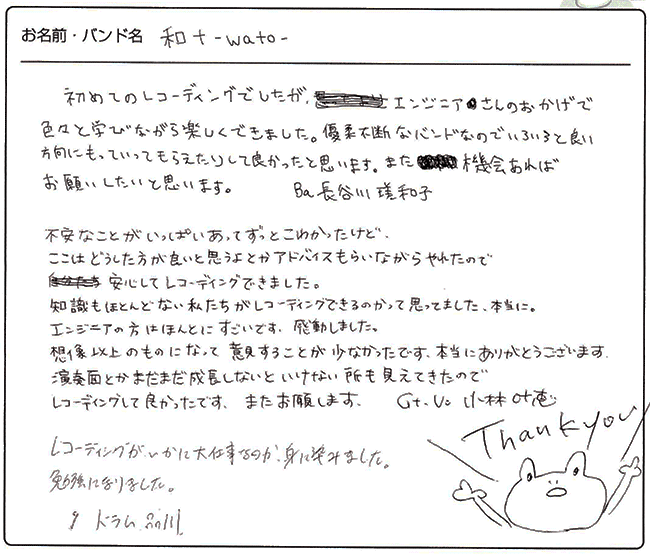 お名前・バンド名 和十-wato-
初めてのレコーディングでしたが、エンジニアさんのおかげで
色々と学びながら楽しくできました。優柔不断なバンドなのでいろいろと良い
方向にもっていってもらえたりして良かったと思います。また機会あれば
お願いしたいと思います。 Ba 長谷川 瑳和子
不安なことがいっぱいあってずっとこわかったけど、
ここはどうした方が良いと思うよとかアドバイスもらいながらやれたので
安心してレコーディングできました。
知識もほとんどない私たちがレコーディングできるのかって思ってました、本当に。
エンジニアの方はほんとにすごいです、感動しました。
想像以上のものになって意見することが少なかったです、本当にありがとうございます。
演奏面とかまだまだ成長しないといけない所も見えてきたので
レコーディングして良かったです、またお願します。 Gt.Vo 小林叶恵
Thank you
レコーディングが、いかに大仕事なのか、身に染みました。
勉強になりました。
ドラム